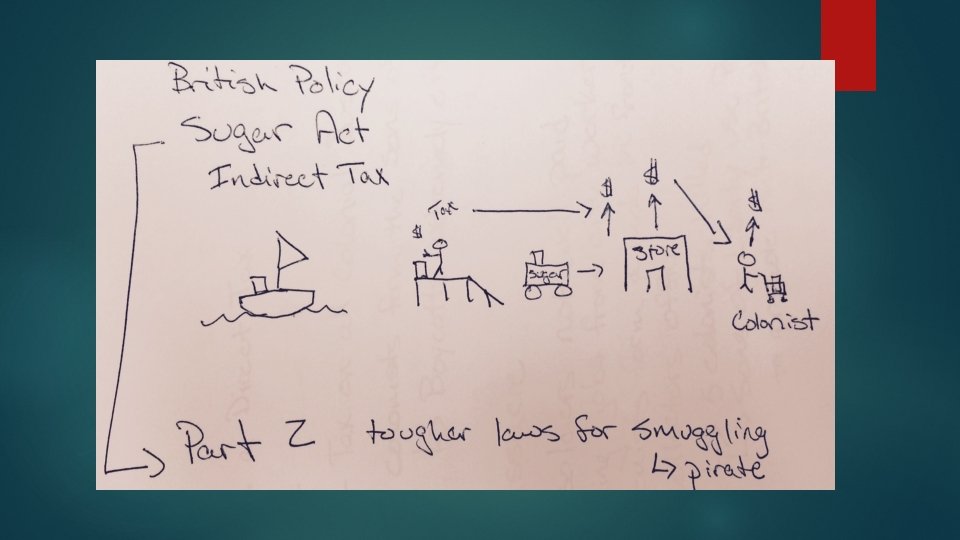 British Policy
Sugar Act
Indirect Tax
Tax
$
$
$
$
Sugar
Store
Colonist
Part 2 tougher laws for smuggling
↳ pirate